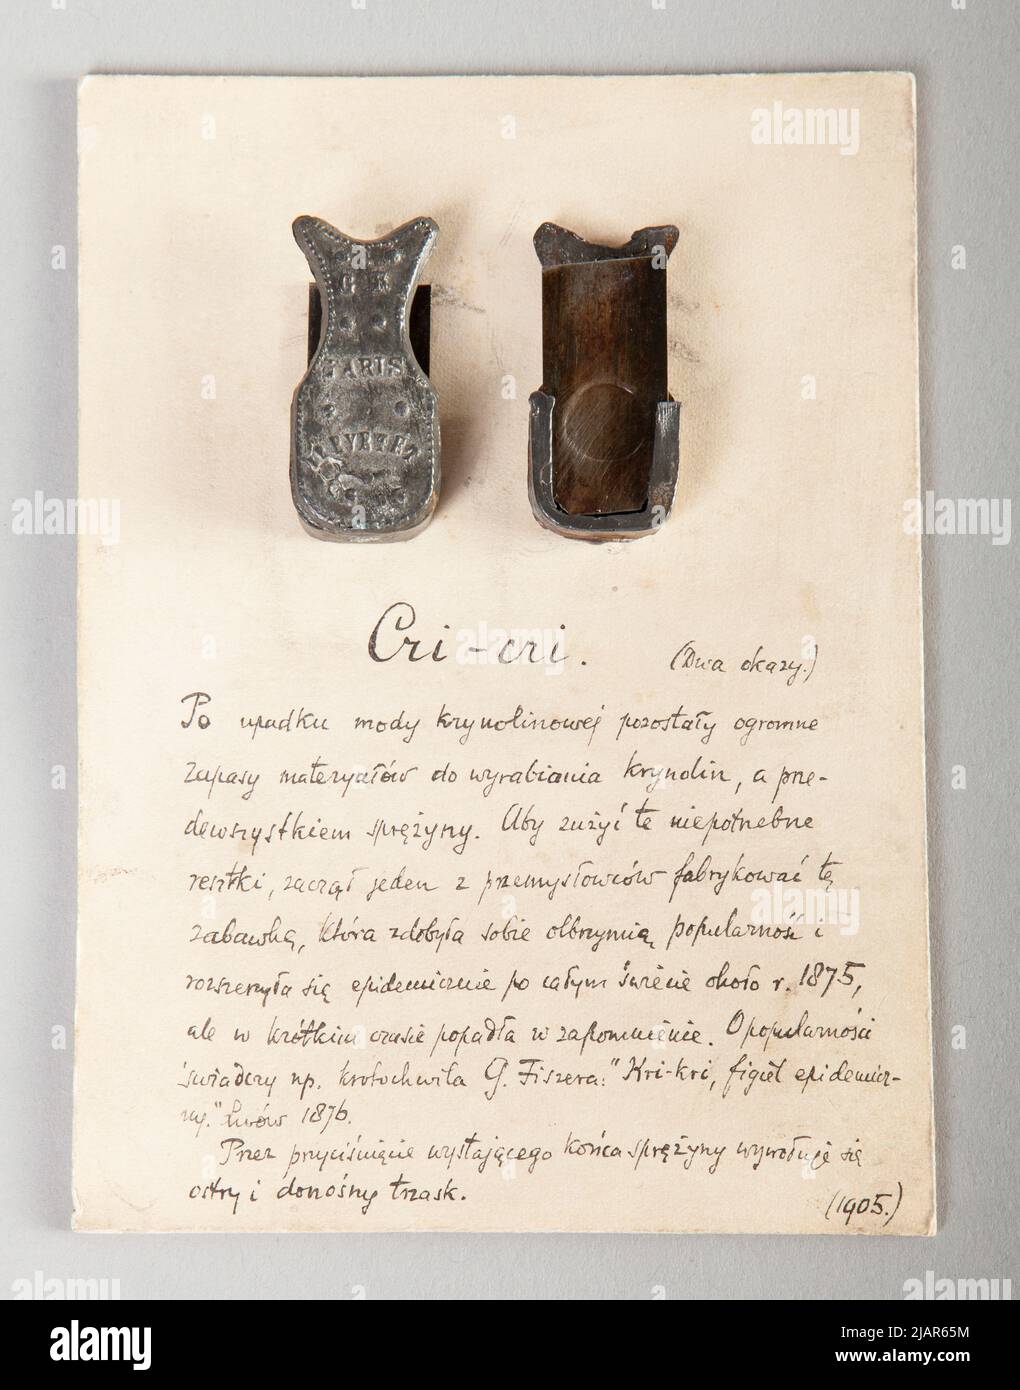 PARIS
Cri-cri.
(Dwa okazy.)
Po upadku mody krynolinowej pozostały ogromne
zapasy materyałów do wyrabiania krynolin, a prze-
dewszystkiem sprężyny. Aby zużyć te niepotrzebne
resztki, zaczął jeden z przemysłowców fabrykować tę
zabawkę, która zdobyła sobie olbrzymią popularność i
rozszerzyła się epidemicznie po całym świecie około r. 1875,
ale w krótkim czasie popadła w zapomnienie. O popularności
świadczy np. krotochwila G. Fiszera: "Kri-kri, figiel epidemicz-
ny." Lwów 1876.
Przez przyciśnięcie wystającego końca sprężyny wywołuje się
ostry i donośny trzask.
(1905.)
alamy
Image ID: 2JAR65M
www.alamy.com